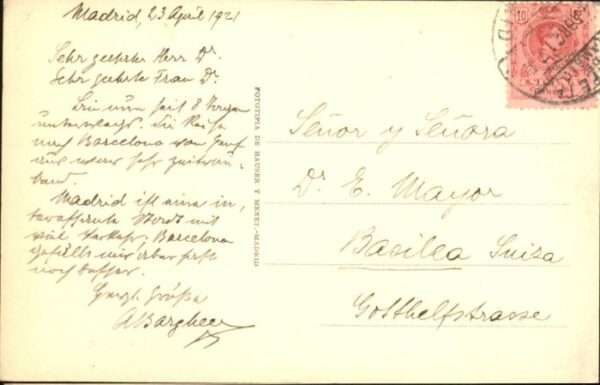 Madrid, 23 April 1921
Sehr geehrter Herr Dr.
Sehr geehrte Frau Dr.
Bin nun seit 8 Tagen
unterwegs. Die Reise
nach Barcelona von Genf
aus war sehr zeitrau-
bend.
Madrid ist eine in,
teressante Stadt mit
viel Verkehr, Barcelona
gefällt mir aber fast
noch besser.
Herzl. Grüße
FOTOTIPIA DE HAUSER Y MENET.-MADRID
10
Señor y Señora
Dr. E. Mayor
Basilea Suiza
Gotthelfstrasse